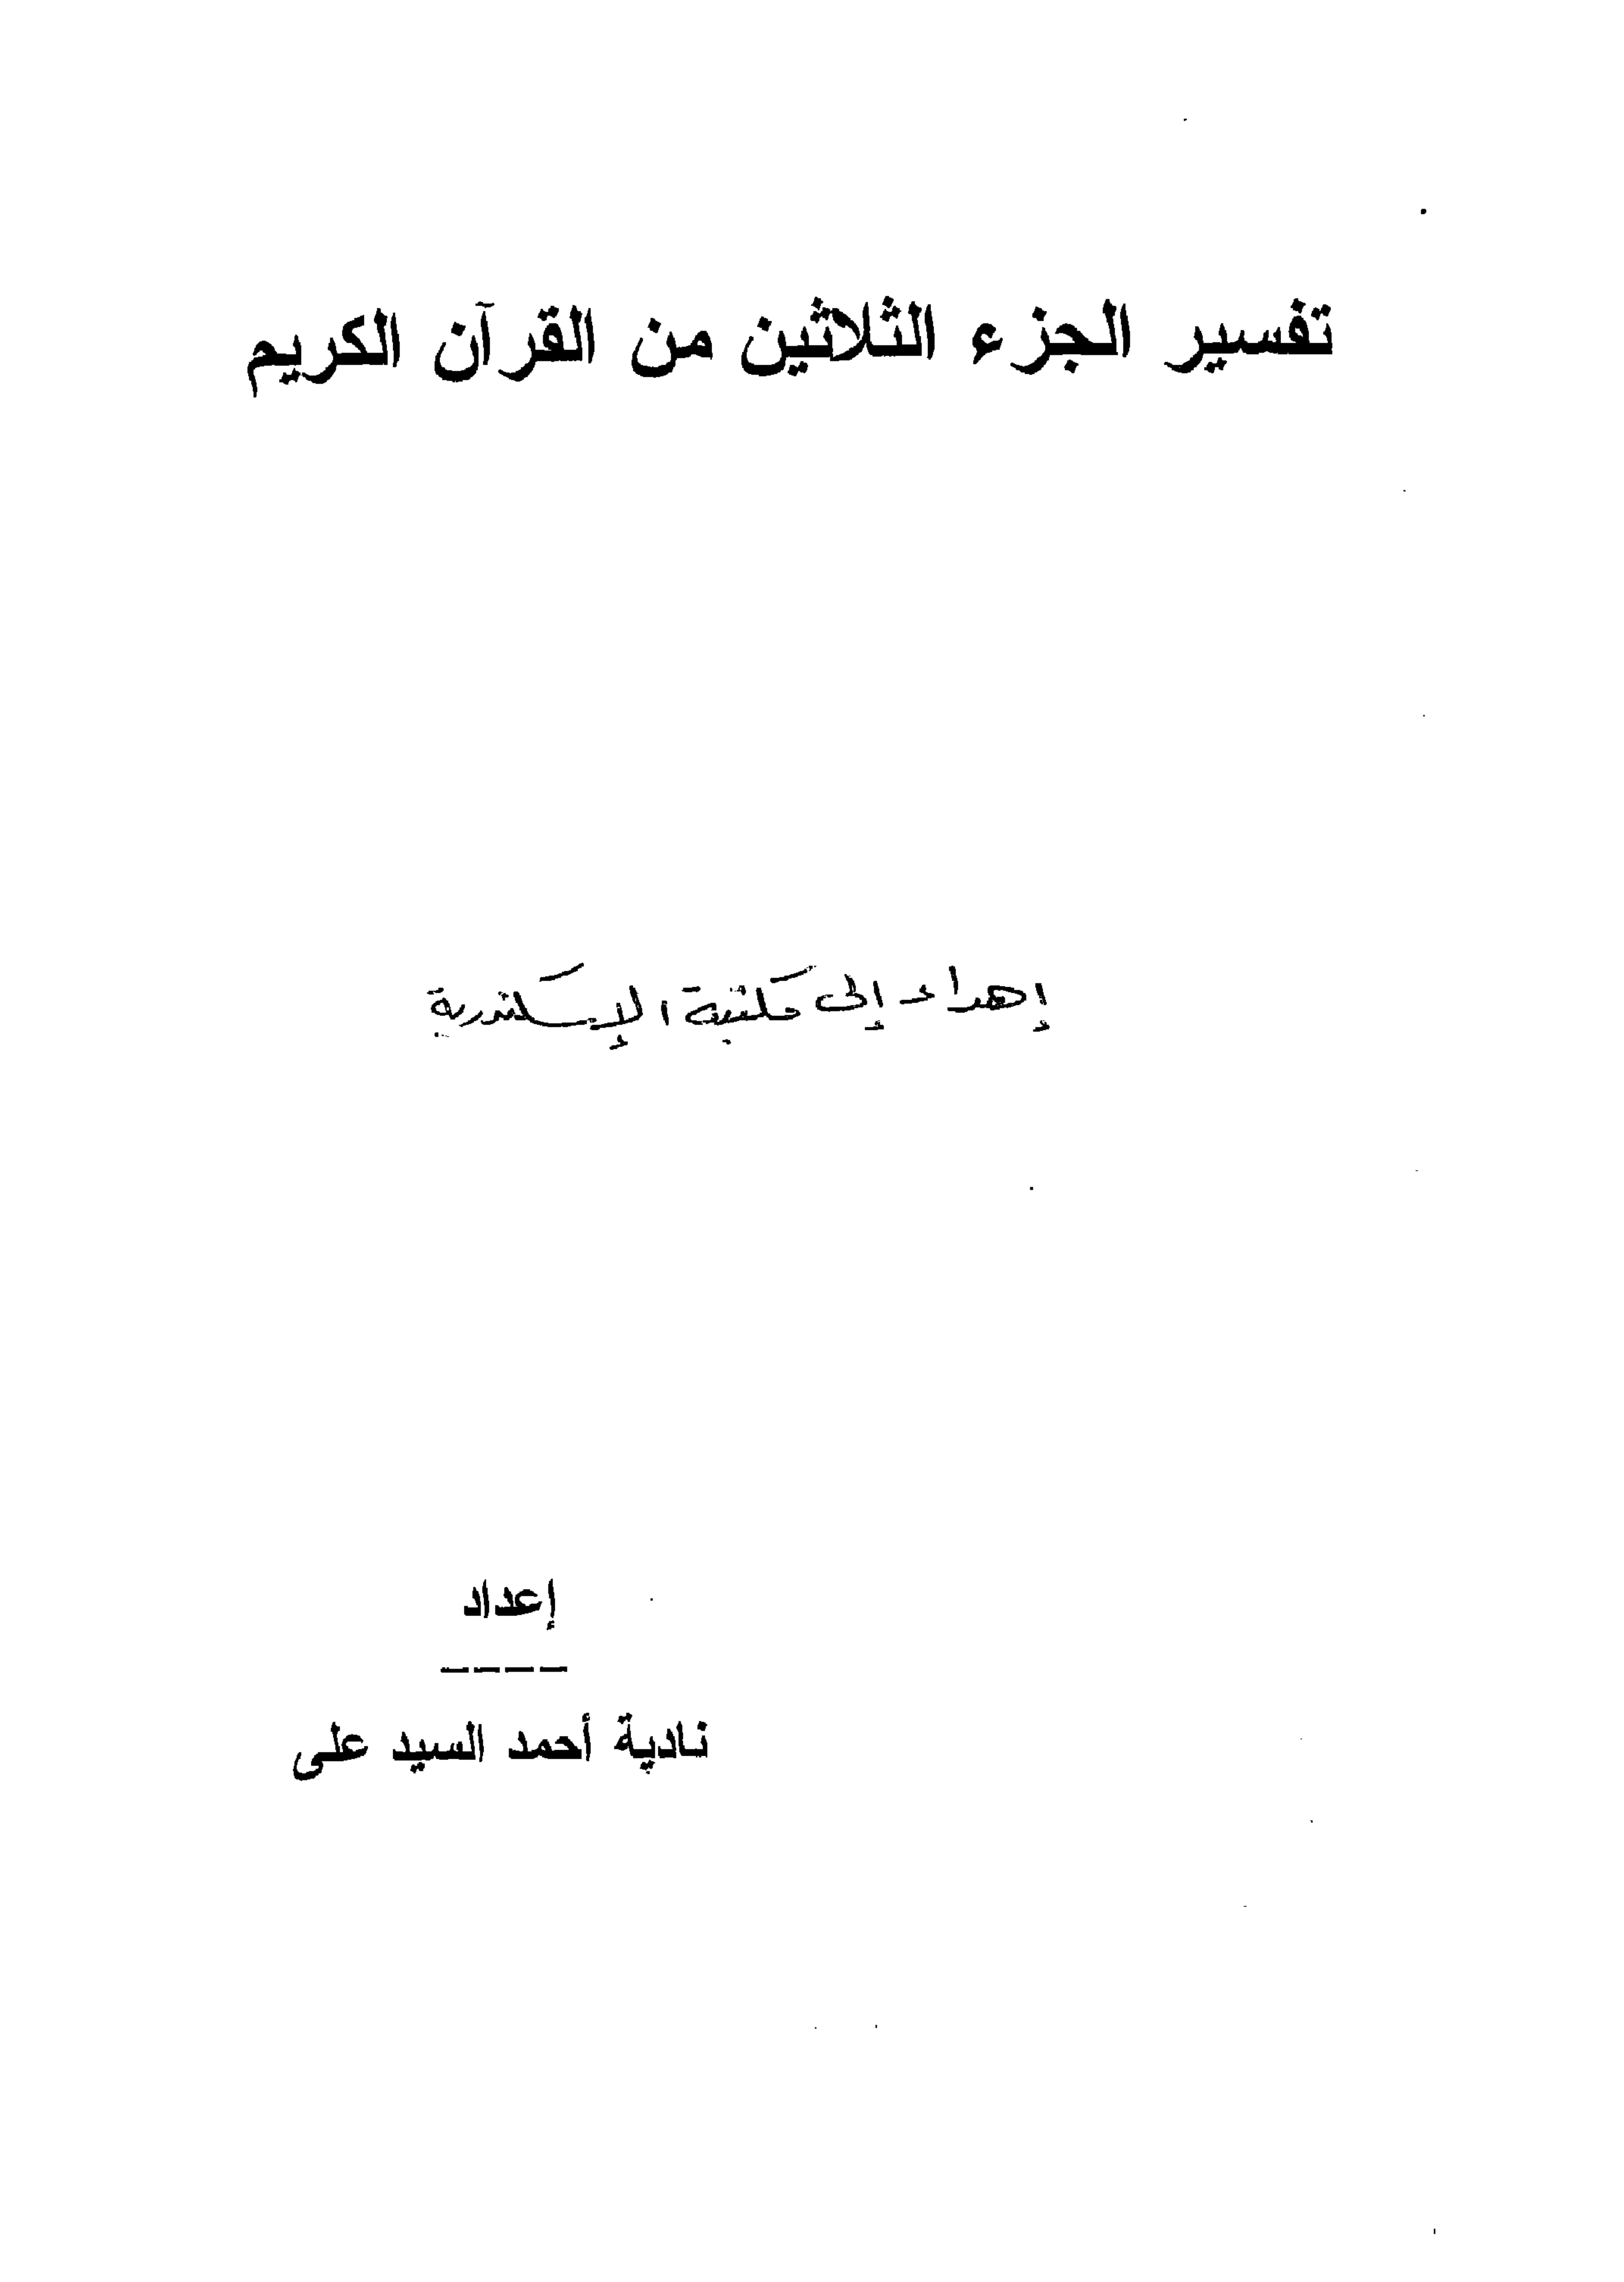 تفسير الجزء الثلاثين من القرآن الكريم
إهداء إلى مكتبة الإسكندرية
إعداد
----
نادية أحمد السيد على